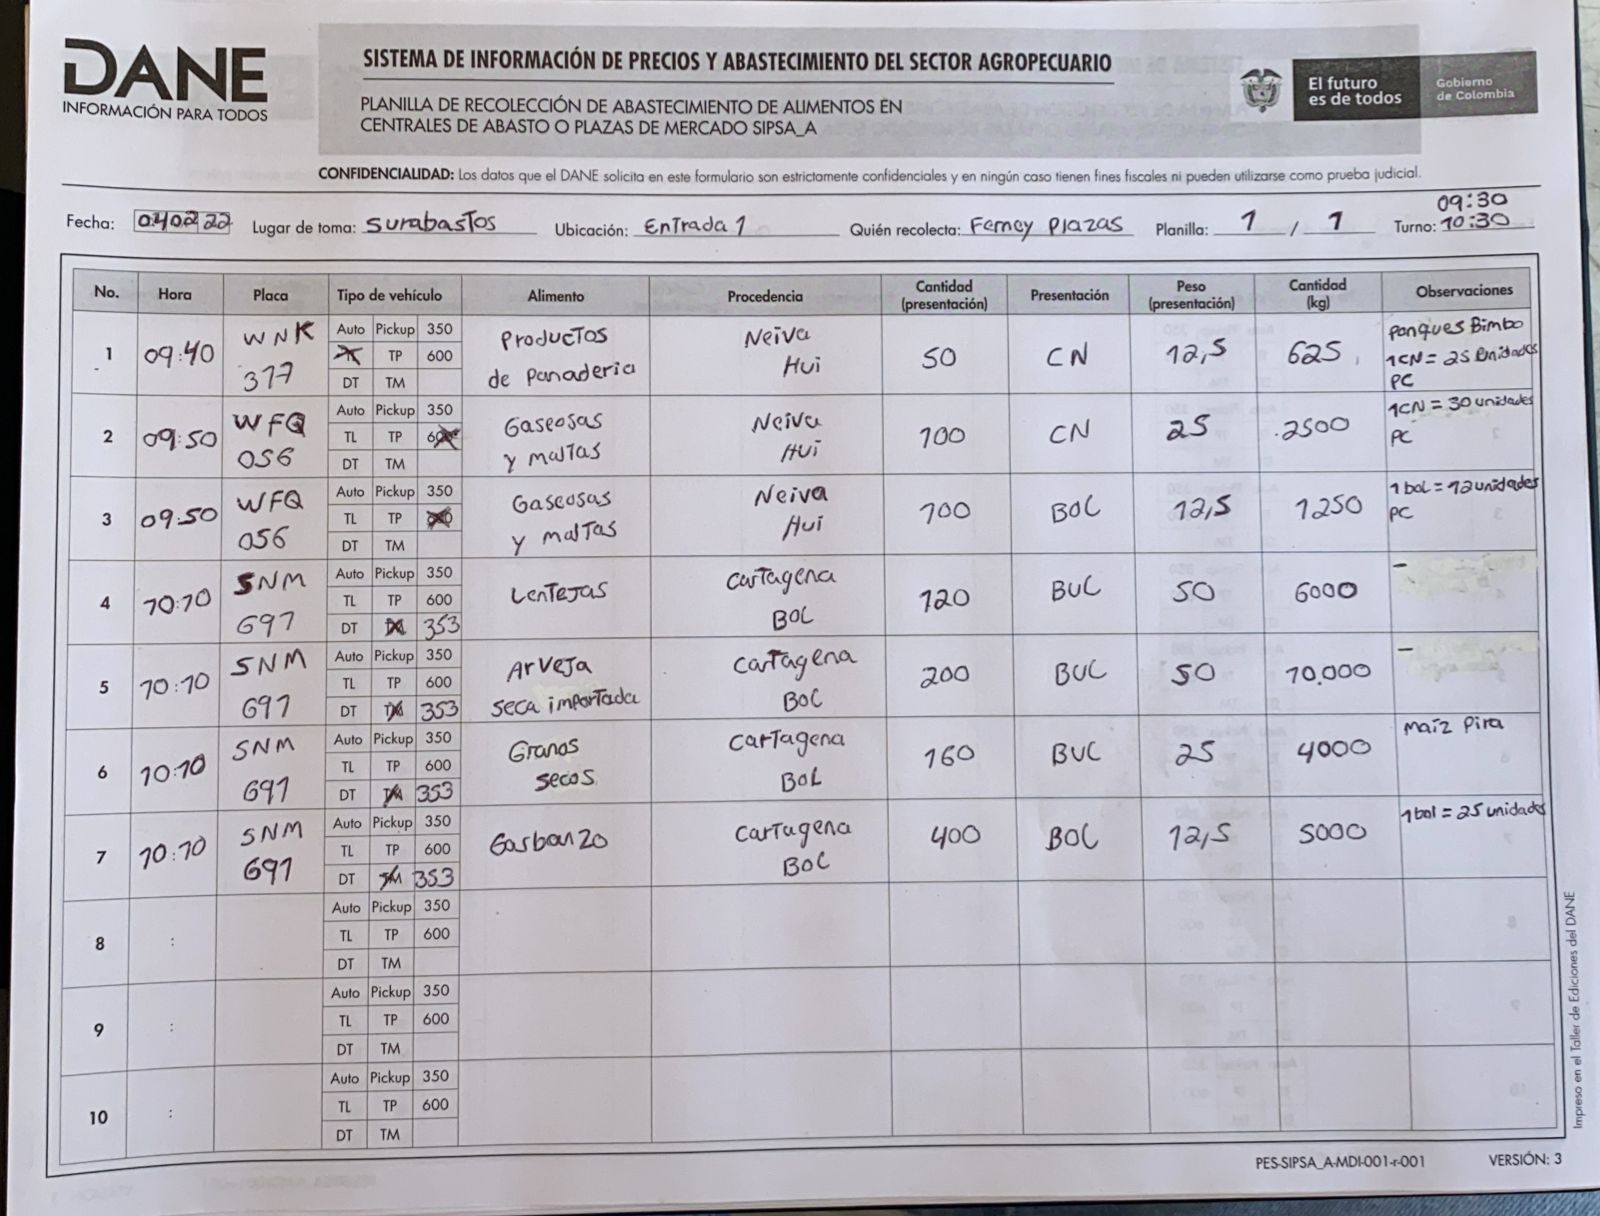 DANE
INFORMACIÓN PARA TODOS
SISTEMA DE INFORMACIÓN DE PRECIOS Y ABASTECIMIENTO DEL SECTOR AGROPECUARIO
PLANILLA DE RECOLECCIÓN DE ABASTECIMIENTO DE ALIMENTOS EN
CENTRALES DE ABASTO O PLAZAS DE MERCADO SIPSA_A
El futuro
es de todos
Gobierno
de Colombia
CONFIDENCIALIDAD: Los datos que el DANE solicita en este formulario son estrictamente confidenciales y en ningún caso tienen fines fiscales ni pueden utilizarse como prueba judicial.
Fecha: 040222 Lugar de toma: Surabastos Ubicación: Entrada 1 Quién recolecta: Ferney Plazas Planilla: 1 / 1 Turno: 09:30
10:30
No. Hora Placa Tipo de vehículo Alimento Procedencia Cantidad (presentación) Presentación Peso (presentación) Cantidad (kg) Observaciones
1 09:40 WNK 377 Auto Pickup 350 Productos de panaderia Neiva Hui 50 CN 12,5 625 panques Bimbo
TP 600 1CN = 25 Unidades
DT TM PC
2 09:50 WFQ 056 Auto Pickup 350 Gaseosas y maltas Neiva Hui 100 CN 25 2500 1CN = 30 unidades
TL TP 600 PC
DT TM
3 09:50 WFQ 056 Auto Pickup 350 Gaseosas y maltas Neiva Hui 100 BOL 12,5 1250 1 bol = 12 unidades
TL TP 600 PC
DT TM
4 10:10 SNM 697 Auto Pickup 350 Lentejas Cartagena BOL 120 BUL 50 6000 -
TL TP 600
DT TM 353
5 10:10 SNM 697 Auto Pickup 350 Arveja seca importada Cartagena BOL 200 BUL 50 10.000 -
TL TP 600
DT TM 353
6 10:10 SNM 697 Auto Pickup 350 Granos secos Cartagena BOL 160 BUL 25 4000 maíz Pira
TL TP 600
DT TM 353
7 10:10 SNM 697 Auto Pickup 350 Garbanzo Cartagena BOL 400 BOL 12,5 5000 1 bol = 25 unidades
TL TP 600
DT TM 353
8 : Auto Pickup 350
TL TP 600
DT TM
9 : Auto Pickup 350
TL TP 600
DT TM
10 : Auto Pickup 350
TL TP 600
DT TM
PES-SIPSA_A-MDI-001-r-001 VERSIÓN: 3
Impreso en el Taller de Ediciones del DANE